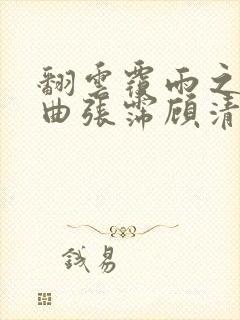 翻雲覆雨之
曲張霈顧清
錢易